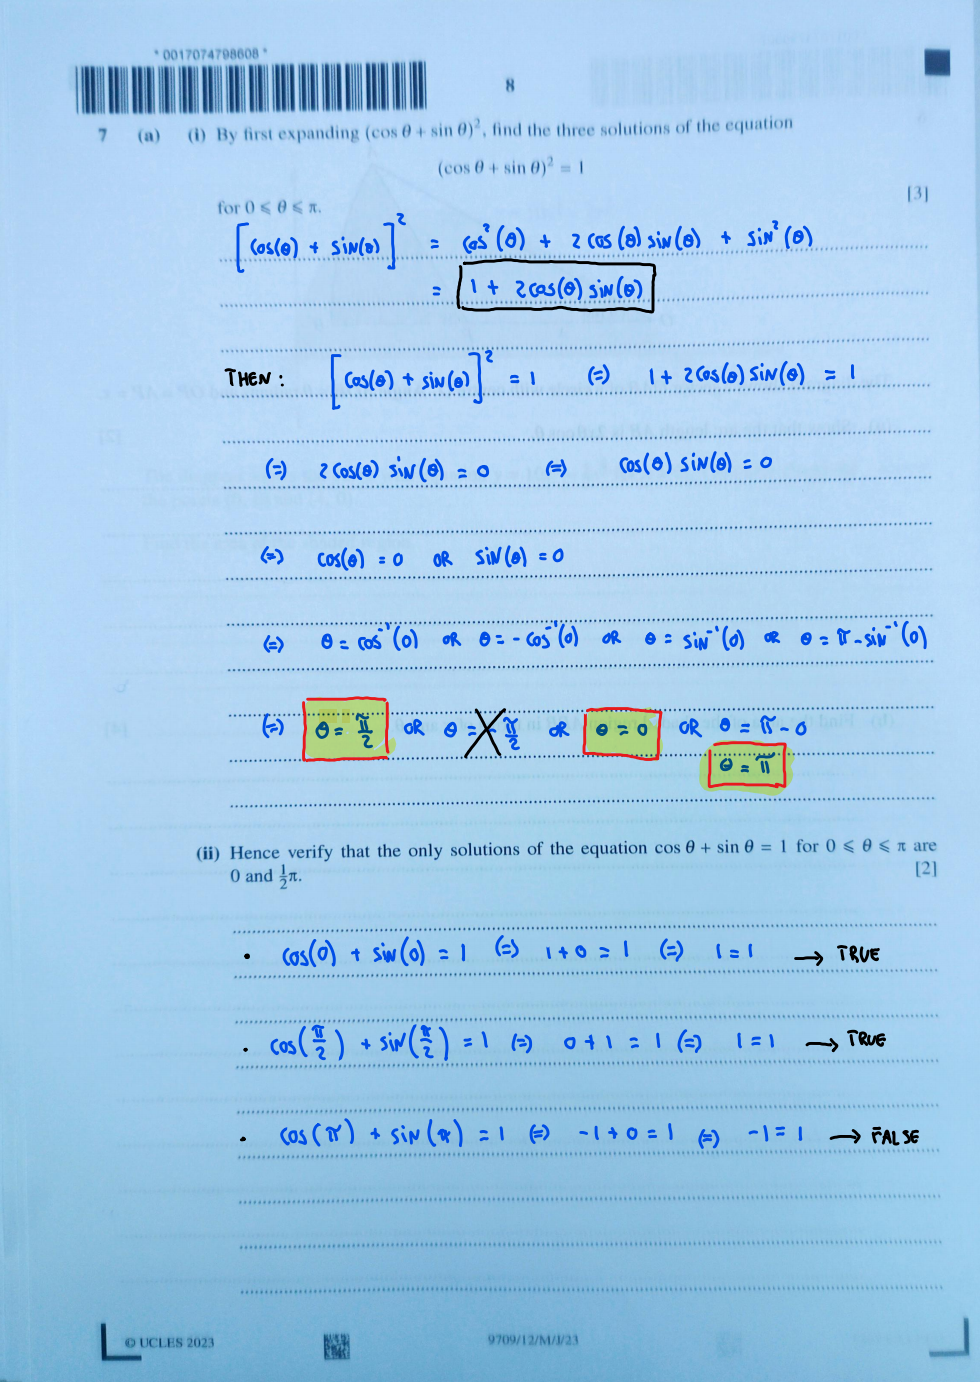 * 0017074798608 *
8
7 (a) (i) By first expanding (cos θ + sin θ)², find the three solutions of the equation
(cos θ + sin θ)² = 1
for 0 ⩽ θ ⩽ π. [3]
[cos(θ) + sin(θ)]² = cos²(θ) + 2 cos(θ) sin(θ) + sin²(θ)
= 1 + 2cos(θ) sin(θ)
THEN : [cos(θ) + sin(θ)]² = 1 (=) 1 + 2cos(θ) sin(θ) = 1
(=) 2 cos(θ) sin(θ) = 0 (=) cos(θ) sin(θ) = 0
(=) cos(θ) = 0 OR sin(θ) = 0
(=) θ = cos⁻¹(0) OR θ = - cos⁻¹(0) OR θ = sin⁻¹(0) OR θ = π - sin⁻¹(0)
(=) θ = π/2 OR θ = - π/2 OR θ = 0 OR θ = π - 0
θ = π
(ii) Hence verify that the only solutions of the equation cos θ + sin θ = 1 for 0 ⩽ θ ⩽ π are
0 and ½π. [2]
• cos(0) + sin(0) = 1 (=) 1 + 0 = 1 (=) 1 = 1 → TRUE
• cos(π/2) + sin(π/2) = 1 (=) 0 + 1 = 1 (=) 1 = 1 → TRUE
• cos(π) + sin(π) = 1 (=) -1 + 0 = 1 (=) -1 = 1 → FALSE
© UCLES 2023
9709/12/M/J/23